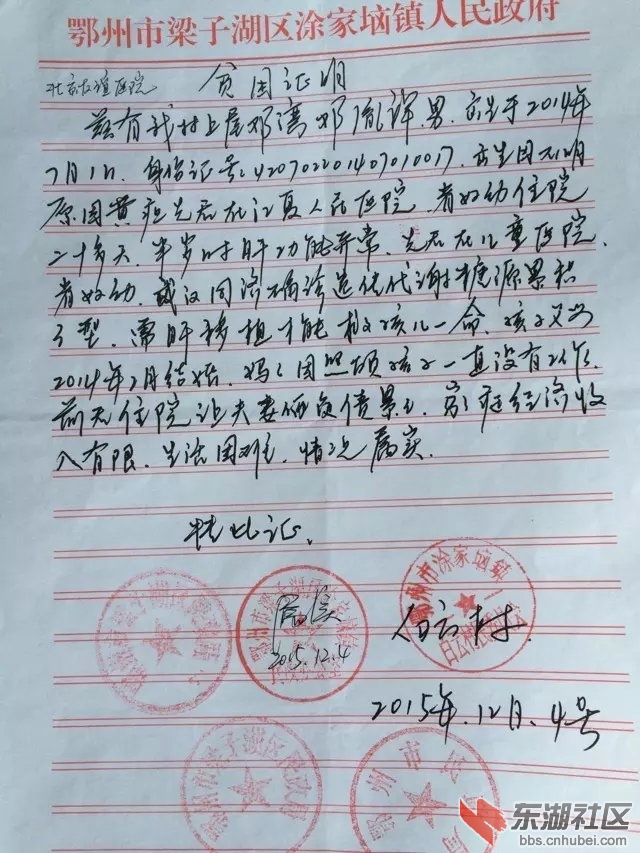 鄂州市梁子湖区涂家垴镇人民政府
北京友谊医院 贫困证明
兹有我村上屋邓湾邓胤祥,男,出生于2014年
7月1日,身份证号:420702201407010017,出生因不明
原因黄疸先后在江夏人民医院、省妇幼住院
二十多天,半岁时肝功能异常,先后在儿童医院、
省妇幼、武汉同济确诊遗传代谢糖源累积
型,需肝移植才能救孩儿一命,孩子父母
2014年2月结婚,妈妈因照顾孩子一直没有工作,
前无住院让夫妻俩负债累累,家庭经济收
入有限,生活困难,情况属实。
特此证。
属实
2015.12.4
白云村
2015年.12月.4号
鄂州市涂家垴镇
鄂州市梁子湖区民政局
鄂州市民
东湖社区
bbs.cnhubei.com